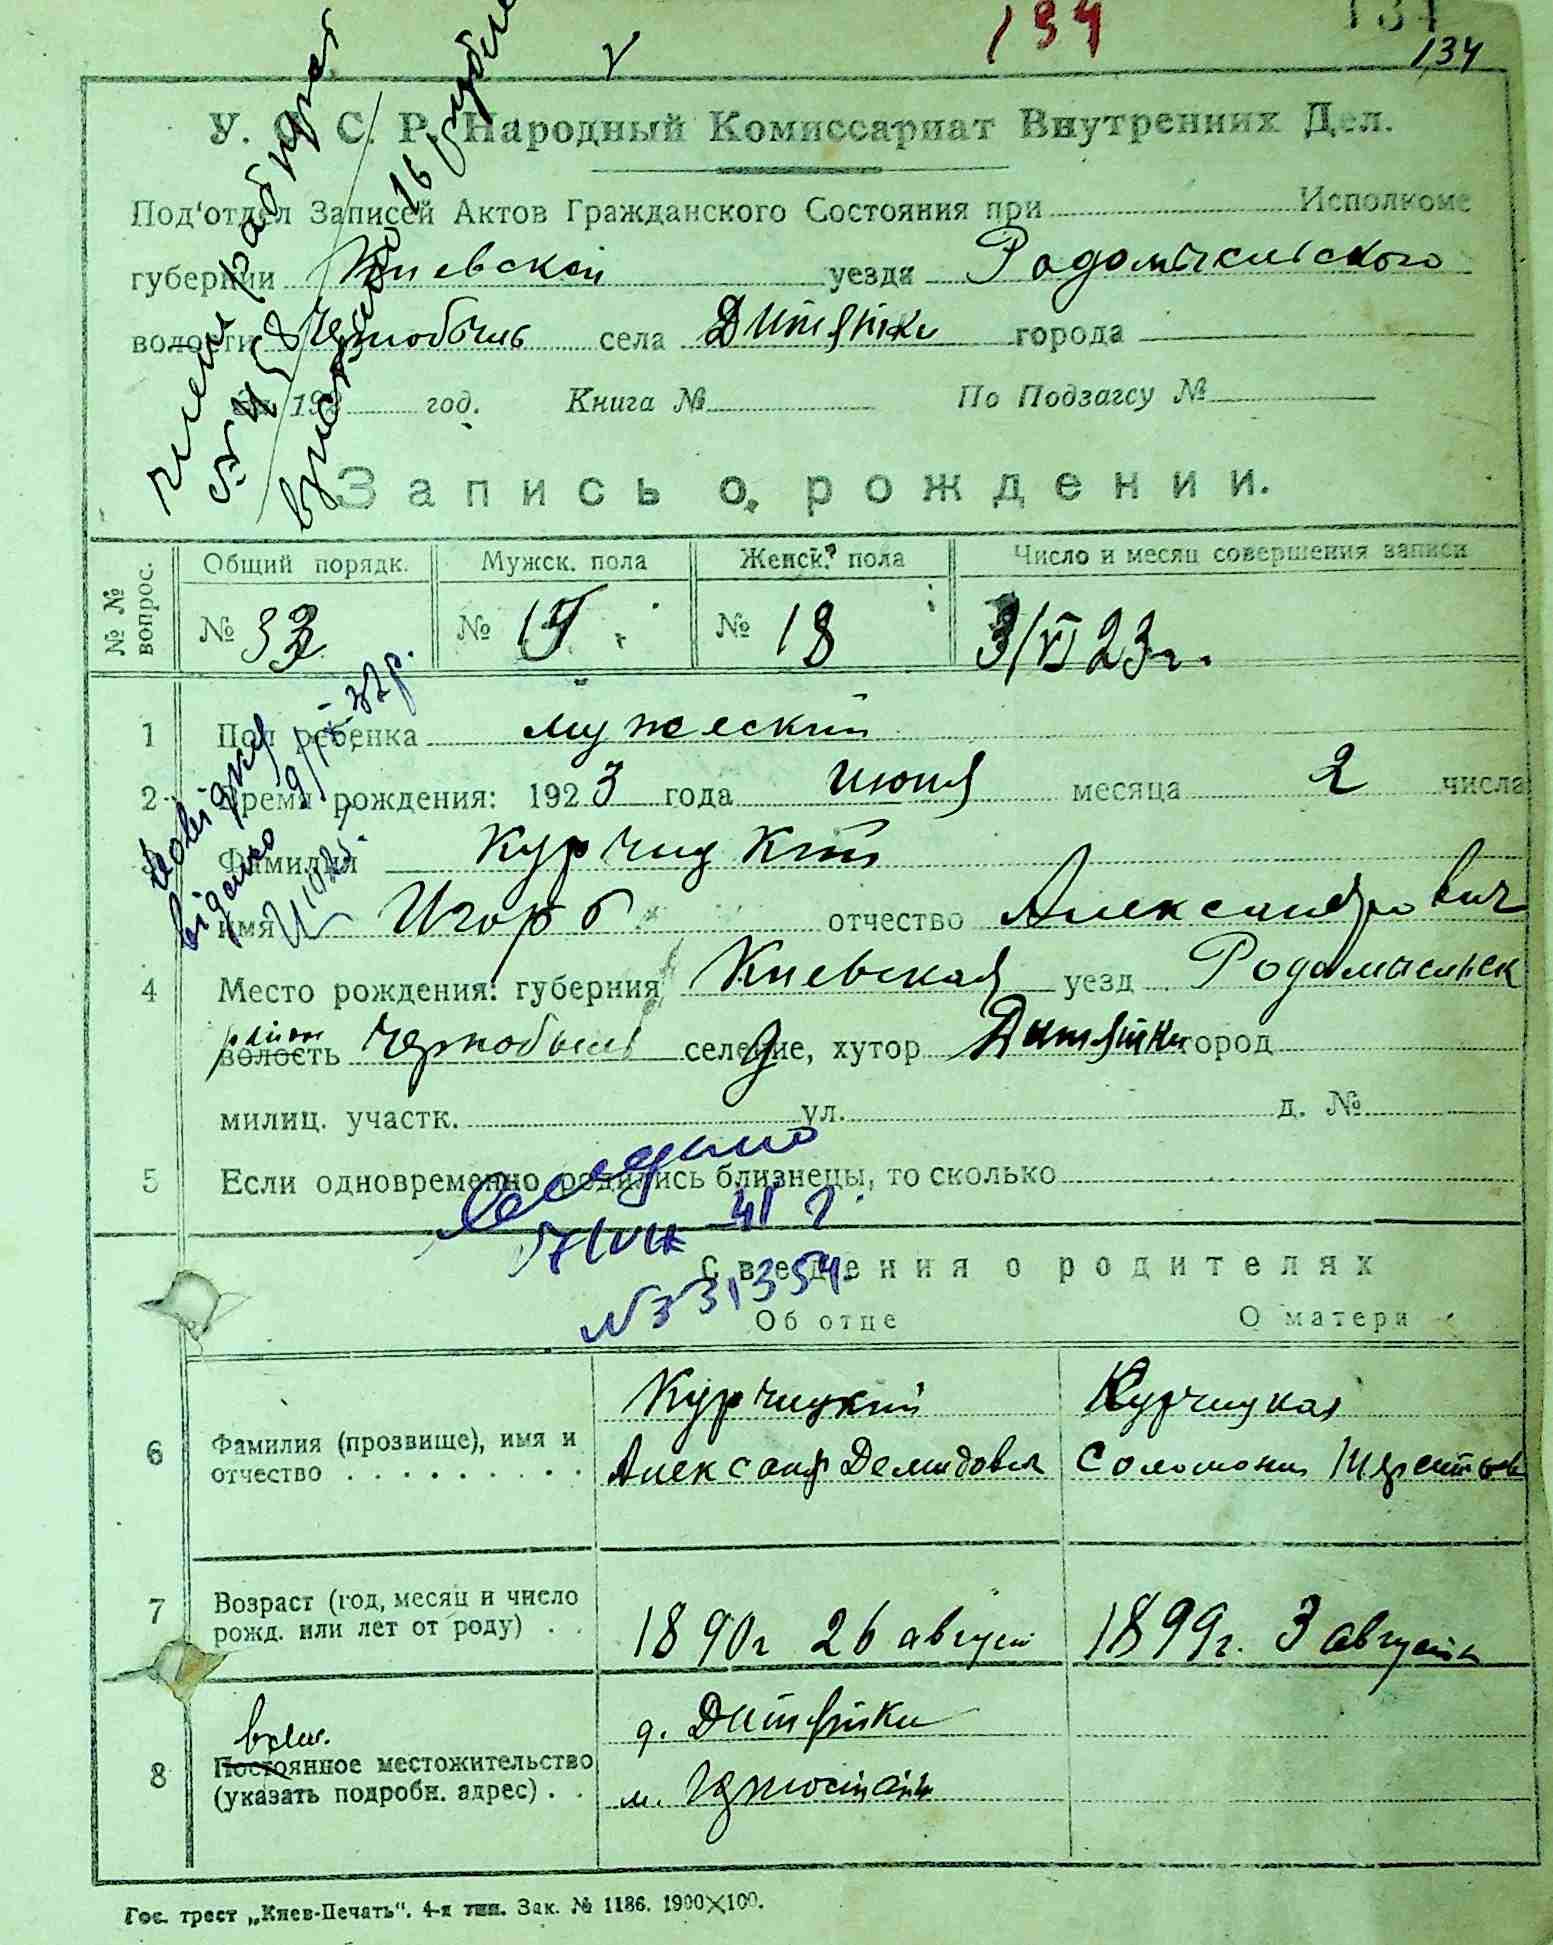 134
134
У. С. С. Р. Народный Комиссариат Внутренних Дел.
Под'отдел Записей Актов Гражданского Состояния при Исполкоме
губернии Киевской уезда Радомысльского
волости Чернобыль села Дитятки города
за 192 год. Книга № По Подзагсу №
Запись о рождении.
№ № вопрос. Общий порядк. Мужск. пола Женск. пола Число и месяц совершения записи
№ 33 № 15 № 18 3/VI 23 г.
1 Пол ребенка мужеский
2 Время рождения: 1923 года июня месяца 2 числа
3 Фамилия Курчицкий
имя Игорь отчество Александрович
4 Место рождения: губерния Киевская уезд Радомысльск
район волость Чернобыль селение, хутор Дитятки город
милиц. участк. ул. д. №
5 Если одновременно родились близнецы, то сколько
41 г.
Сведения о родителях
Об отце О матери
6 Фамилия (прозвище), имя и отчество Курчицкий Курчицкая
Александр Демидович Соломония
7 Возраст (год, месяц и число рожд. или лет от роду) 1890 г 26 август 1899 г. 3 августа
8 Постоянное местожительство (указать подробн. адрес) д. Дитятки
м.
Гос. трест „Киев-Печать". 4-я тип. Зак. № 1186. 1900×100.